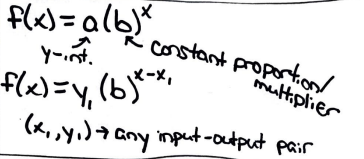 f(x) = a(b)^x
y-int.
constant proportion/
multiplier
f(x) = y₁(b)^{x-x₁}
(x₁, y₁) → any input-output pair